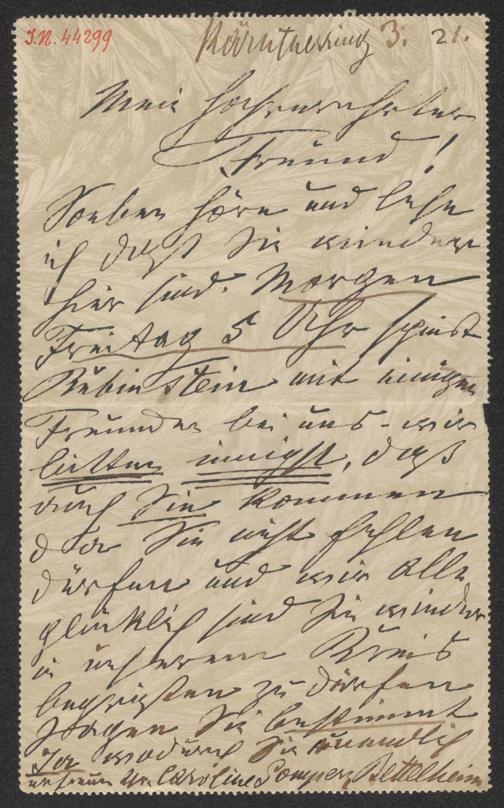 I.N. 44299
Kärnthnerring 3. 21.
Mein hochverehrter
Freund!
Soeben höre und lese
ich daß Sie wieder
hier sind. Morgen
Freitag 5 Uhr spielt
Rubinstein mit einigen
Freunden bei uns - wir
bitten innigst, daß
auch Sie kommen
da Sie nicht fehlen
dürfen und wir alle
glücklich sind Sie wieder
in unserem Kreis
begrüßen zu dürfen
sagen Sie bestimmt
Ja wodurch Sie unendlich
erfreuen Ihre Caroline Gomperz Bettelheim